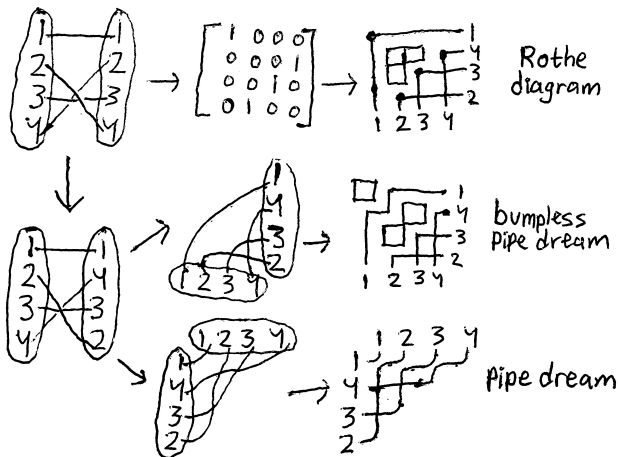 1 1
2 2
3 3
4 4
1 0 0 0
0 0 0 1
0 0 1 0
0 1 0 0
1
4
3
2
1 2 3 4
Rothe
diagram
1 1
2 4
3 3
4 2
1
4
3
2
1 2 3 4
1
4
3
2
1 2 3 4
bumpless
pipe dream
1 2 3 4
1
4
3
2
1 2 3 4
1
4
3
2
pipe dream